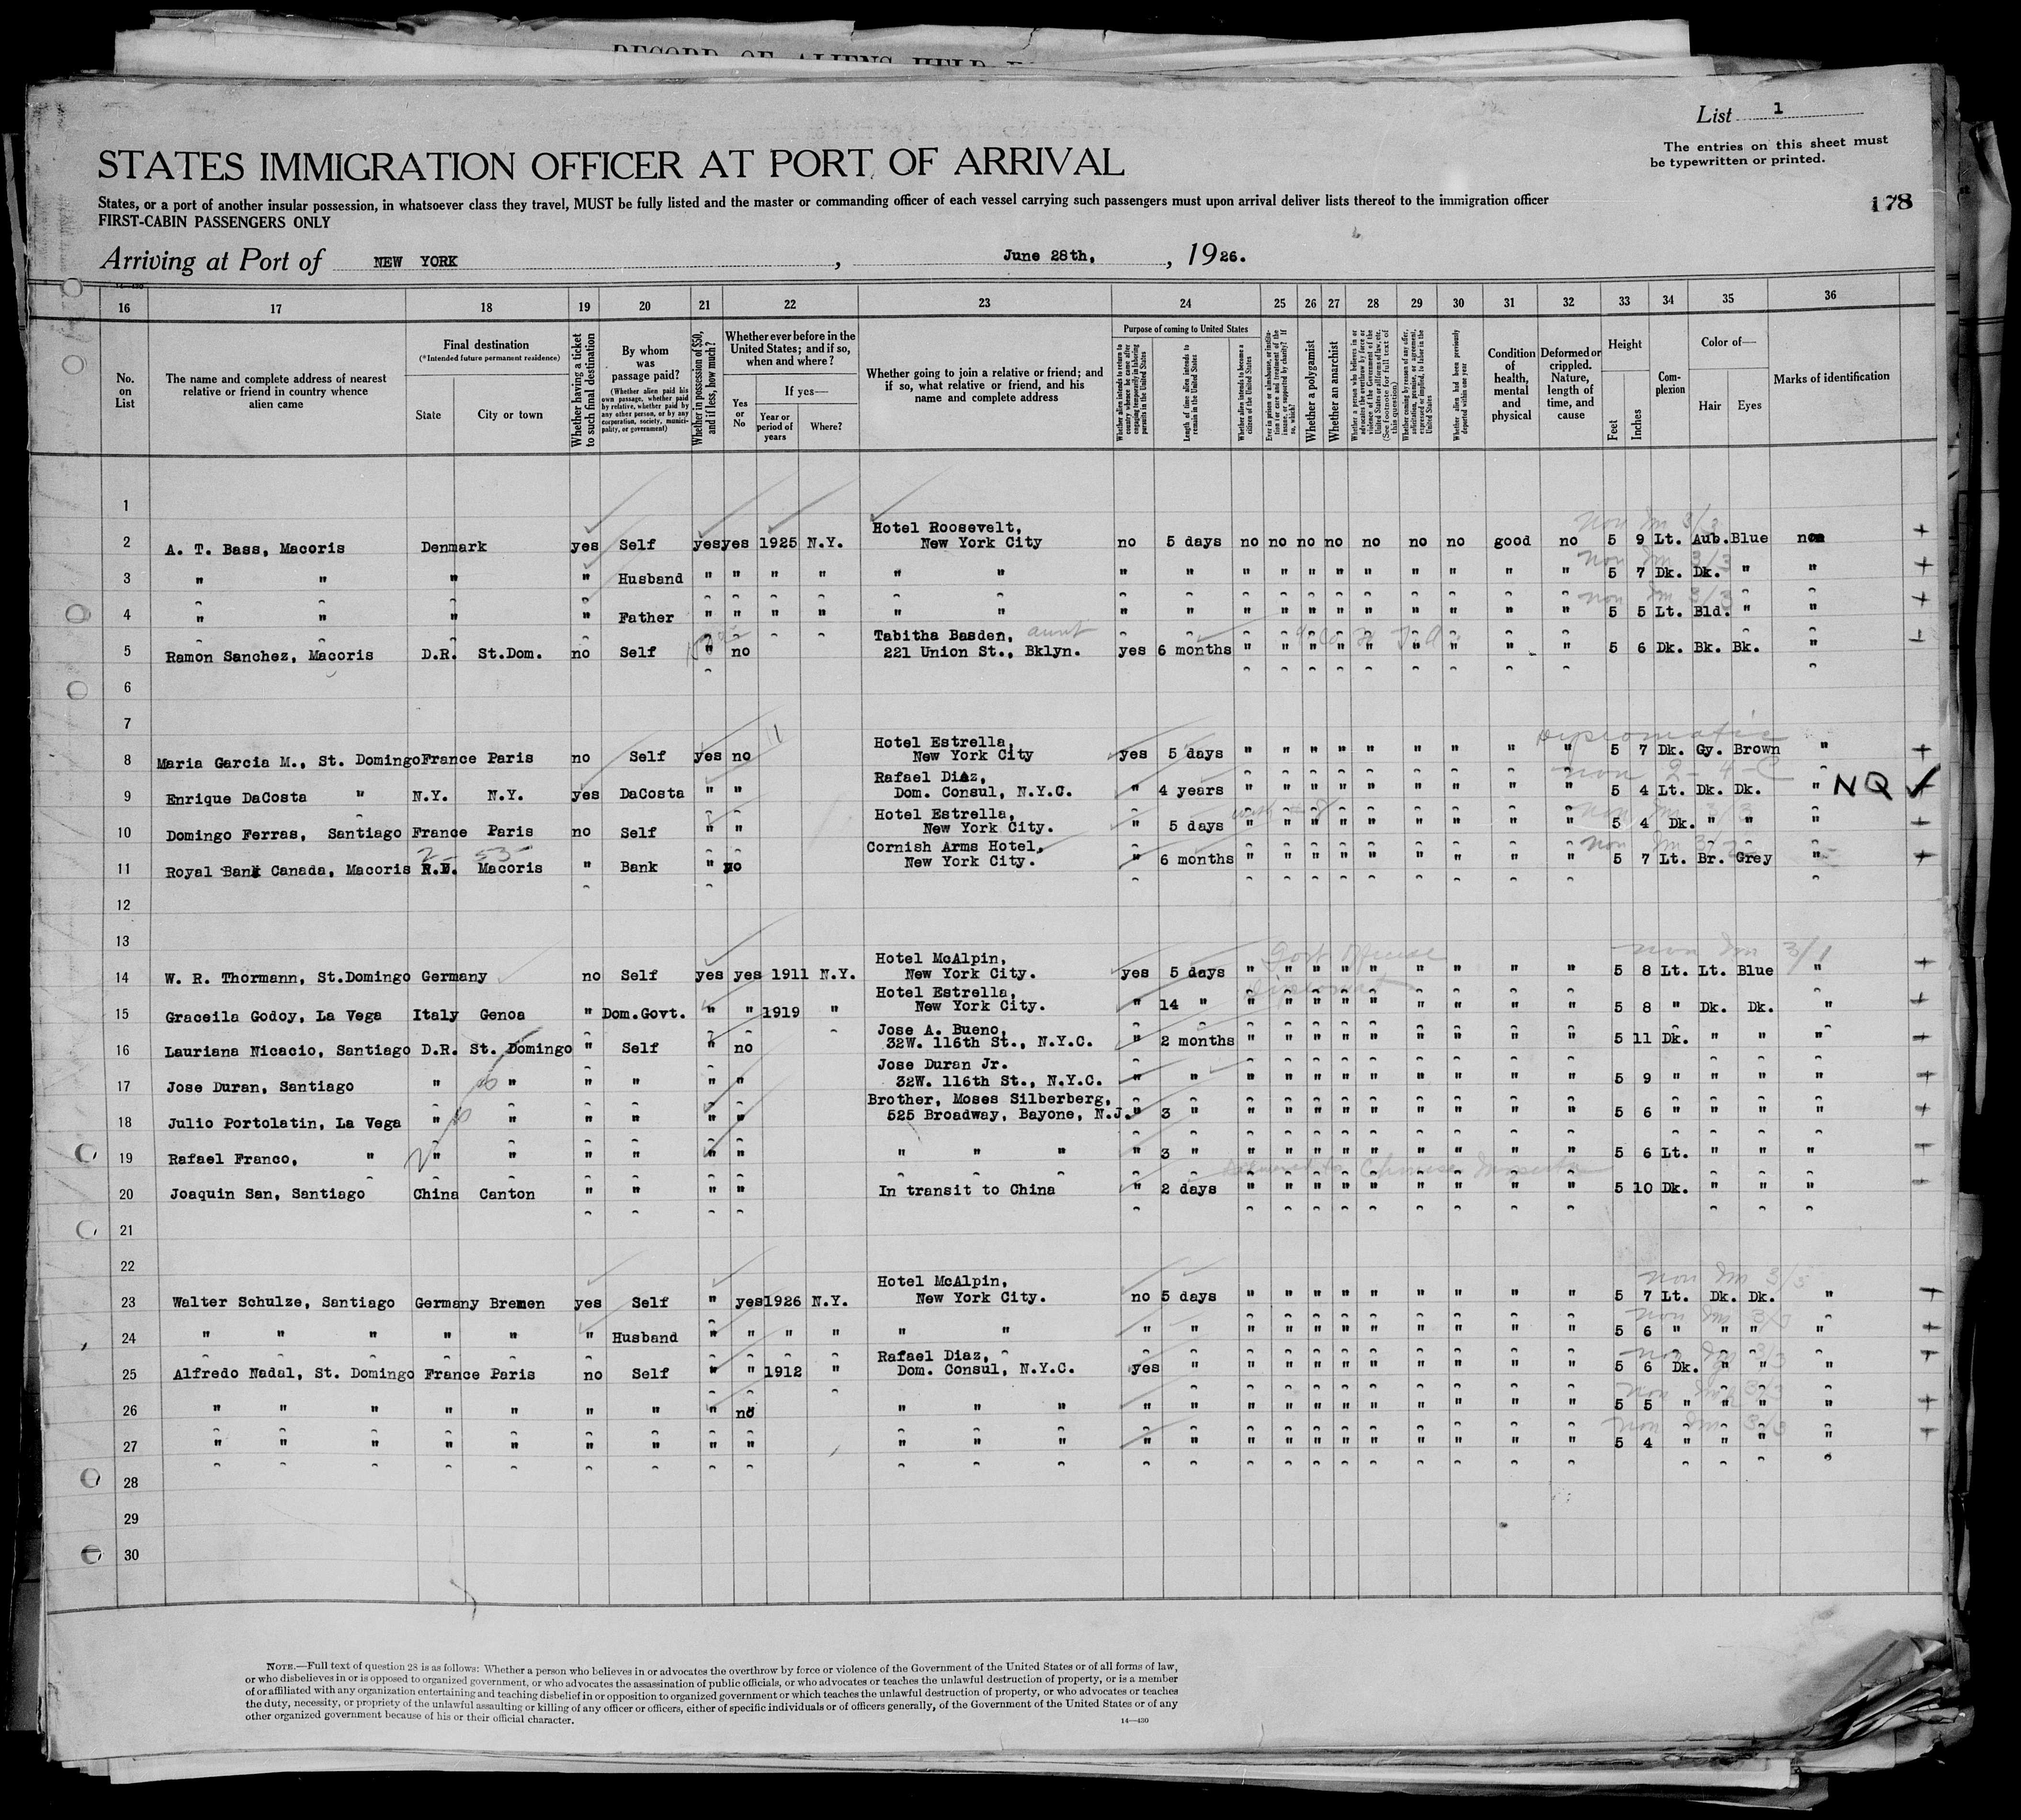 RECORD OF ALIENS HELD
List 1
The entries on this sheet must
be typewritten or printed.
STATES IMMIGRATION OFFICER AT PORT OF ARRIVAL
178
States, or a port of another insular possession, in whatsoever class they travel, MUST be fully listed and the master or commanding officer of each vessel carrying such passengers must upon arrival deliver lists thereof to the immigration officer
FIRST-CABIN PASSENGERS ONLY
Arriving at Port of NEW YORK, June 28th, 1926.
16 17 18 19 20 21 22 23 24 25 26 27 28 29 30 31 32 33 34 35 36
No. on List
The name and complete address of nearest relative or friend in country whence alien came
Final destination
(*Intended future permanent residence)
State City or town
Whether having a ticket to such final destination
By whom was passage paid?
(Whether alien paid his own passage, whether paid by relative, whether paid by any other person, or by any corporation, society, municipality, or government)
Whether in possession of $50, and if less, how much?
Whether ever before in the United States; and if so, when and where?
Yes or No
If yes—
Year or period of years
Where?
Whether going to join a relative or friend; and if so, what relative or friend, and his name and complete address
Purpose of coming to United States
Whether alien intends to return to country whence he came after engaging temporarily in laboring pursuits in the United States
Length of time alien intends to remain in the United States
Whether alien intends to become a citizen of the United States
Ever in prison or almshouse, or institution for care and treatment of the insane, or supported by charity? If so, which?
Whether a polygamist
Whether an anarchist
Whether a person who believes in or advocates the overthrow by force or violence of the Government of the United States or all forms of law, etc. (See footnote for full text of this question)
Whether coming by reason of any offer, solicitation, promise, or agreement, expressed or implied, to labor in the United States
Whether alien had been previously deported within one year
Condition of health, mental and physical
Deformed or crippled. Nature, length of time, and cause
Height
Feet Inches
Complexion
Color of—
Hair Eyes
Marks of identification
1
Non Im 3/3
Hotel Roosevelt,
2 A. T. Bass, Macoris Denmark yes Self yes yes 1925 N.Y. New York City no 5 days no no no no no no no good no 5 9 Lt. Aub. Blue +
Non Im 3/3
3 " " " " Husband " " " " " " " " " " " " " " " " " 5 7 Dk. Dk. " " +
non Im 3/3
4 " " " " Father " " " " " " " " " " " " " " " " " 5 5 Lt. Bld. " " +
Tabitha Basden, aunt
5 Ramon Sanchez, Macoris D.R. St.Dom. no Self " no 221 Union St., Bklyn. yes 6 months " " " " " " " " " 5 6 Dk. Bk. Bk. "
6
7
Diplomatic
Hotel Estrella,
8 Maria Garcia M., St. Domingo France Paris no Self yes no New York City yes 5 days " " " " " " " " " 5 7 Dk. Gy. Brown " +
non 2-4-C
Rafael Diaz,
9 Enrique DaCosta " N.Y. N.Y. yes DaCosta " " Dom. Consul, N.Y.C. " 4 years " " " " " " " " " 5 4 Lt. Dk. Dk. " NQ
Non Im 3/3
Hotel Estrella,
10 Domingo Ferras, Santiago France Paris no Self " " New York City. " 5 days " " " " " " " " " 5 4 Dk. " " " +
Cornish Arms Hotel,
11 Royal Bank Canada, Macoris Macoris " Bank " no New York City. " 6 months " " " " " " " " " 5 7 Lt. Br. Grey " +
12
13
Non Im 3/1
Hotel McAlpin,
14 W. R. Thormann, St.Domingo Germany no Self yes yes 1911 N.Y. New York City. yes 5 days " " " " " " " " " 5 8 Lt. Lt. Blue " +
Diplomat
Hotel Estrella,
15 Graceila Godoy, La Vega Italy Genoa " Dom.Govt. " " 1919 " New York City. " 14 " " " " " " " " " " 5 8 " Dk. Dk. " +
Jose A. Bueno,
16 Lauriana Nicacio, Santiago D.R. St. Domingo " Self " no 32W. 116th St., N.Y.C. " 2 months " " " " " " " " " 5 11 Dk. " " " +
Jose Duran Jr.
17 Jose Duran, Santiago " " " " " " 32W. 116th St., N.Y.C. " " " " " " " " " " " 5 9 " " " " +
Brother, Moses Silberberg,
18 Julio Portolatin, La Vega " " " " " " 525 Broadway, Bayone, N.J. " 3 " " " " " " " " " " 5 6 " " " " +
19 Rafael Franco, " " " " " " " " " " " 3 " " " " " " " " " " 5 6 Lt. " " " +
20 Joaquin San, Santiago China Canton " " " " In transit to China " 2 days " " " " " " " " " 5 10 Dk. " " "
21
22
Non Im 3/3
Hotel McAlpin,
23 Walter Schulze, Santiago Germany Bremen yes Self " yes 1926 N.Y. New York City. no 5 days " " " " " " " " " 5 7 Lt. Dk. Dk. " +
Non Im 3/3
24 " " " " " " Husband " " " " " " " " " " " " " " " " " 5 6 " " " " +
Rafael Diaz,
25 Alfredo Nadal, St. Domingo France Paris no Self " " 1912 " Dom. Consul, N.Y.C. yes " " " " " " " " " " 5 6 Dk. " " " +
Non Im 3/3
26 " " " " " " " " no " " " " " " " " " " " " " " 5 5 " " " " +
Non Im 3/3
27 " " " " " " " " " " " " " " " " " " " " " " " 5 4 " " " " +
28
29
30
NOTE.—Full text of question 28 is as follows: Whether a person who believes in or advocates the overthrow by force or violence of the Government of the United States or of all forms of law,
or who disbelieves in or is opposed to organized government, or who advocates the assassination of public officials, or who advocates or teaches the unlawful destruction of property, or is a member
of or affiliated with any organization entertaining and teaching disbelief in or opposition to organized government or which teaches the unlawful destruction of property, or who advocates or teaches
the duty, necessity, or propriety of the unlawful assaulting or killing of any officer or officers, either of specific individuals or of officers generally, of the Government of the United States or of any
other organized government because of his or their official character.
14—430